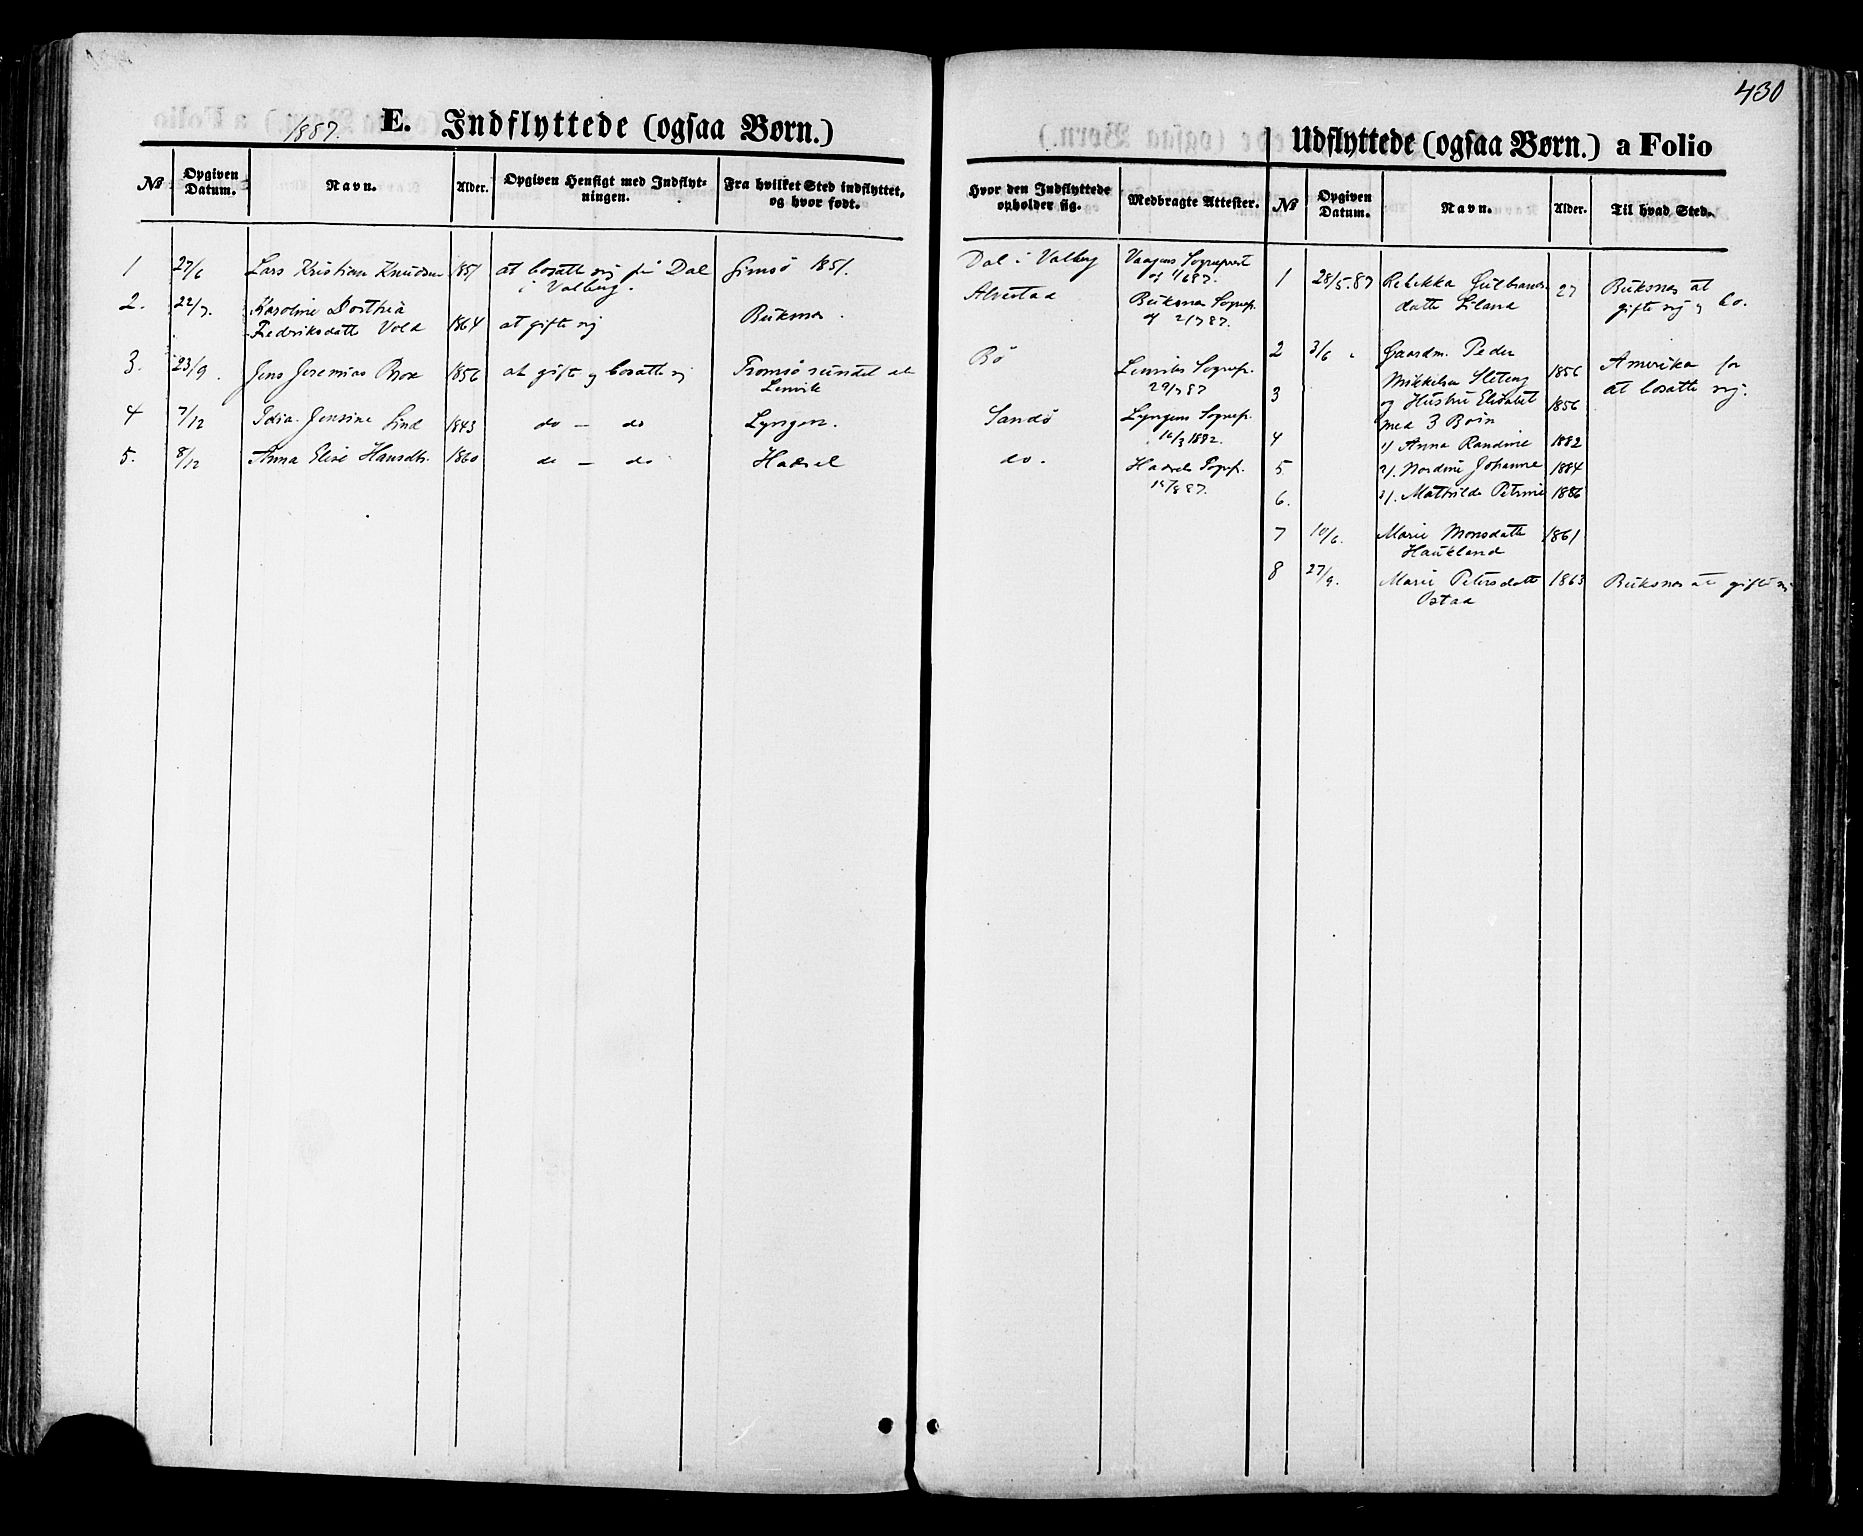 430
1887. E. Indflyttede (ogsaa Børn.)
№ Opgiven Datum. Navn. Alder. Opgiven Hensigt med Indflytningen. Fra hvilket Sted indflyttet, og hvor født. Hvor den Indflyttede opholder sig. Medbragte Attester.
1 27/6 Lars Kristian Knudsen 1851 at bosætte sig på Dal Gimsö 1851. Dal i Valberg Vaagens Sognepræst
i Valberg. af 1/6 87.
2. 22/7. Karoline Dorthea Alvestad Buksnes Sognep.
Fredriksdatte Vold 1864 at gifte sig Buksnes. af 2/7 87.
3. 23/9. Jens Jeremias Brox 1856 at gifte og bosætte sig Tromsösundet Bö Lenviks Sognep.
Lenvik 29/7 87
4 7/12 Jensine Lind 1843 do - do Lyngen. Sandö Lyngens Sognep.
1882.
5. 8/12 Anna Elise Hansdtr. 1860 do - do Hadsel do. Hadsels Sognep.
87.
Udflyttede (ogsaa Børn.) a Folio
№ Opgiven Datum. Navn. Alder. Til hvad Sted.
1 28/5.87 Rebekka Gulbrands- 27 Buksnes at
datte Liland gifte sig og bo.
2 3/6 Gaardm. Peder
Mikkelsen Sleteng 1856 Amerika for
3 og Hustru Elisabet 1856 at bosætte sig.
med 3 Børn
4 1/ Anna Randine 1882
5 2/. Nordine Johanne 1884
6. 3/. Mathilde Petrine 1886
7 10/6. Marie Monsdatte 1861
Haukland
8 27/9. Marie Petersdatte 1863 Buksnes at gifte sig
Ostad